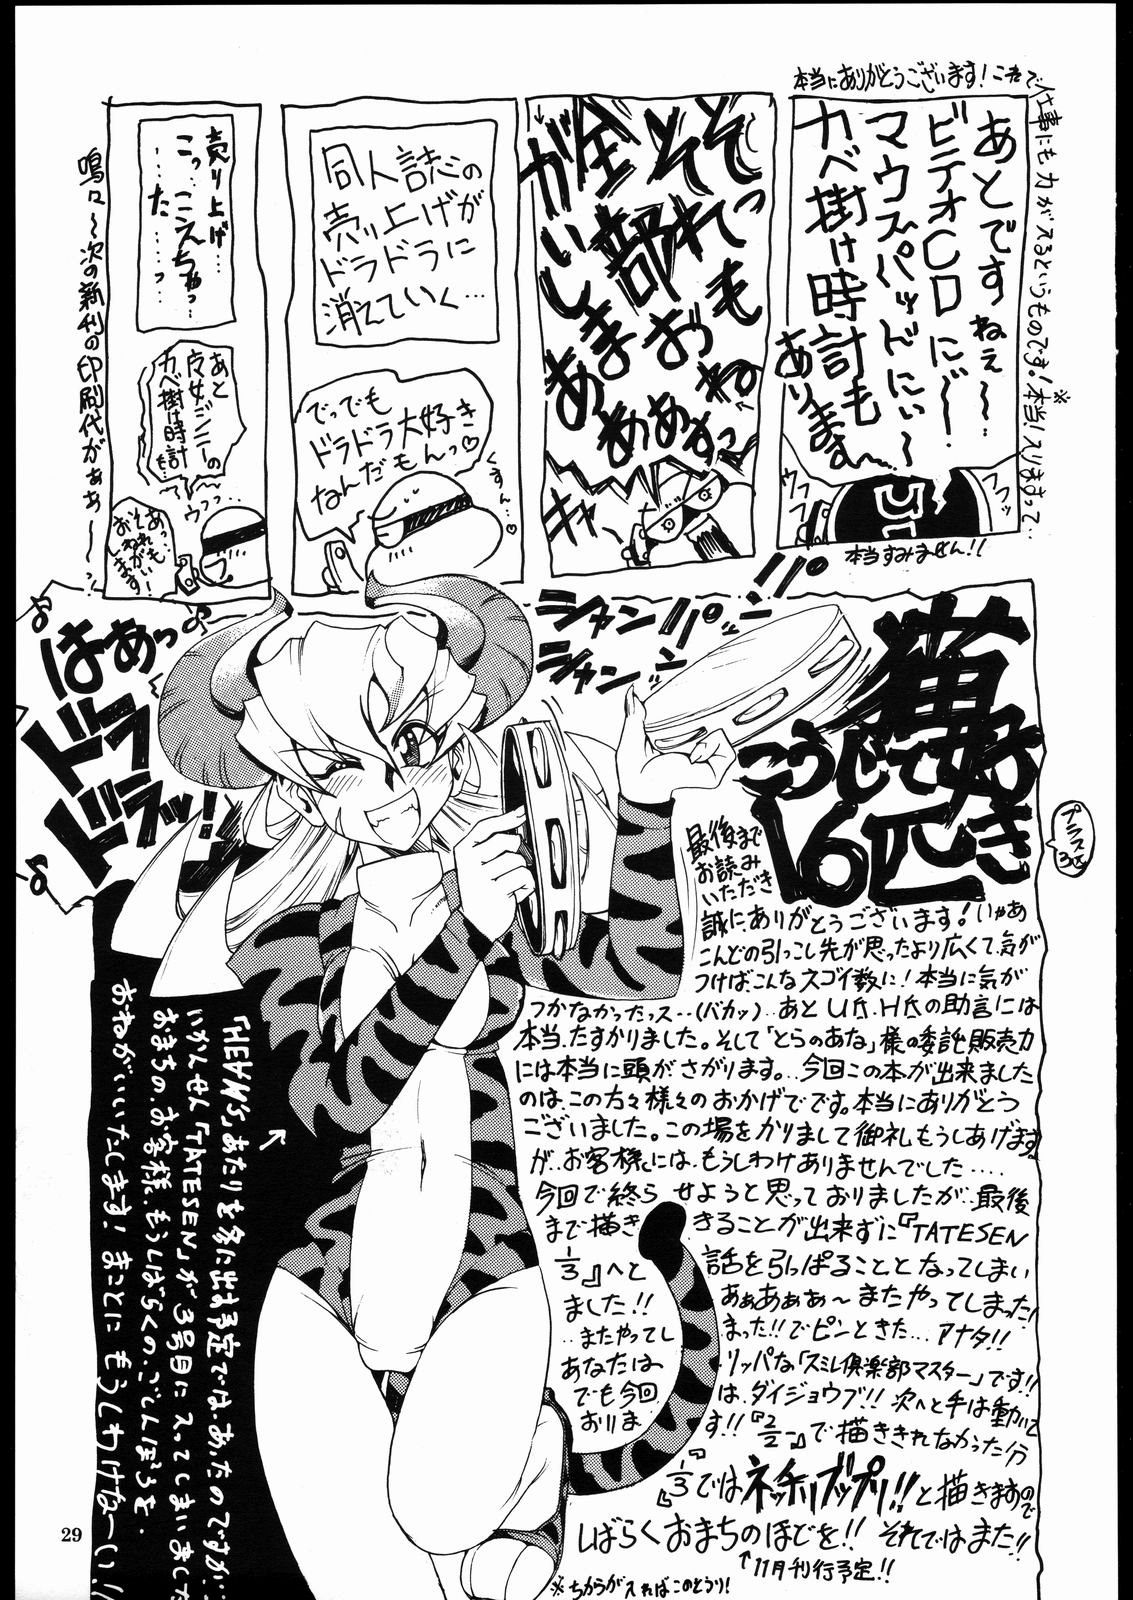 本当にありがとうございます!これで仕事にも力がスるというものです!本当!スりまよって‥
あとですねぇ〜
ビデオCDにぃ〜
マウスパッドにぃ〜
カベ掛け時計も
ありまぁす〜
ウフフ
フフッ
本当すみません!!
そそれっも
全部おね
がいしまぁぁすっ
ああああ
キャー
同人誌の
売り上げが
ドラドラに
消えていく…
でっでも
ドラドラ大好き
なんだもんっ♡
くすん…♡
売り上げ…
こっ…こえちゃっ…
……た………っ
あと
ジニーの
カベ掛け時計も
ウフフっ…
あっ…
それも
おねがい
します!
鳴々〜次の新刊の印刷代がぁぁ〜〜っ
はあっ
ドラ
ドラッ!!
シャンシャン
パンパン
猫好き
こうじて
16匹
プラス3匹
最後まで
お読み
いただき
誠にありがとうございます!いやぁ
こんどの引っこし先が思ったより広くて、気が
つけば、こんなスゴイ数に!本当に気が
つかなかったっス‥(バカッ)‥あとU氏、H氏の助言には
本当、たすかりました。そして「とらのあな」様の委託販売力
には本当に頭がさがります。‥今回この本が出来ました
のは、この方々様々のおかげでです。本当にありがとう
ございました。この場をかりまして御礼もうしあげます。
が、お客様には、もうしわけありませんでした‥‥
今回で終らせようと思っておりましたが、最後
まで描ききることが出来ずに『TATESEN
1/3』へと話を引っぱることとなってしまい
ました!!あぁあぁぁ〜またやってしまった!
‥またやってしまった!!でピンときた…アナタ!!
あなたは、リッパな「スミレ倶楽部マスター」です!!
でも今回は、ダイジョウブ!!次へと手は動いて
おります!!『2/2』で描ききれなかった分
『1/3』ではネッチリブップリ!!と描きますので
しばらくおまちのほどを!!それではまた!!
↑11月刊行予定!!
※ちからがスればこのとうり!
「HEAVN'S」あたりを多に出す予定では、あったのですが…
いかんせん「TATESEN」が3号目に入ってしまいました
おまちの、お客様、もうしばらくの、ごしんぼうを、
おねがいいたします!まことにもうしわけなーい!!
29